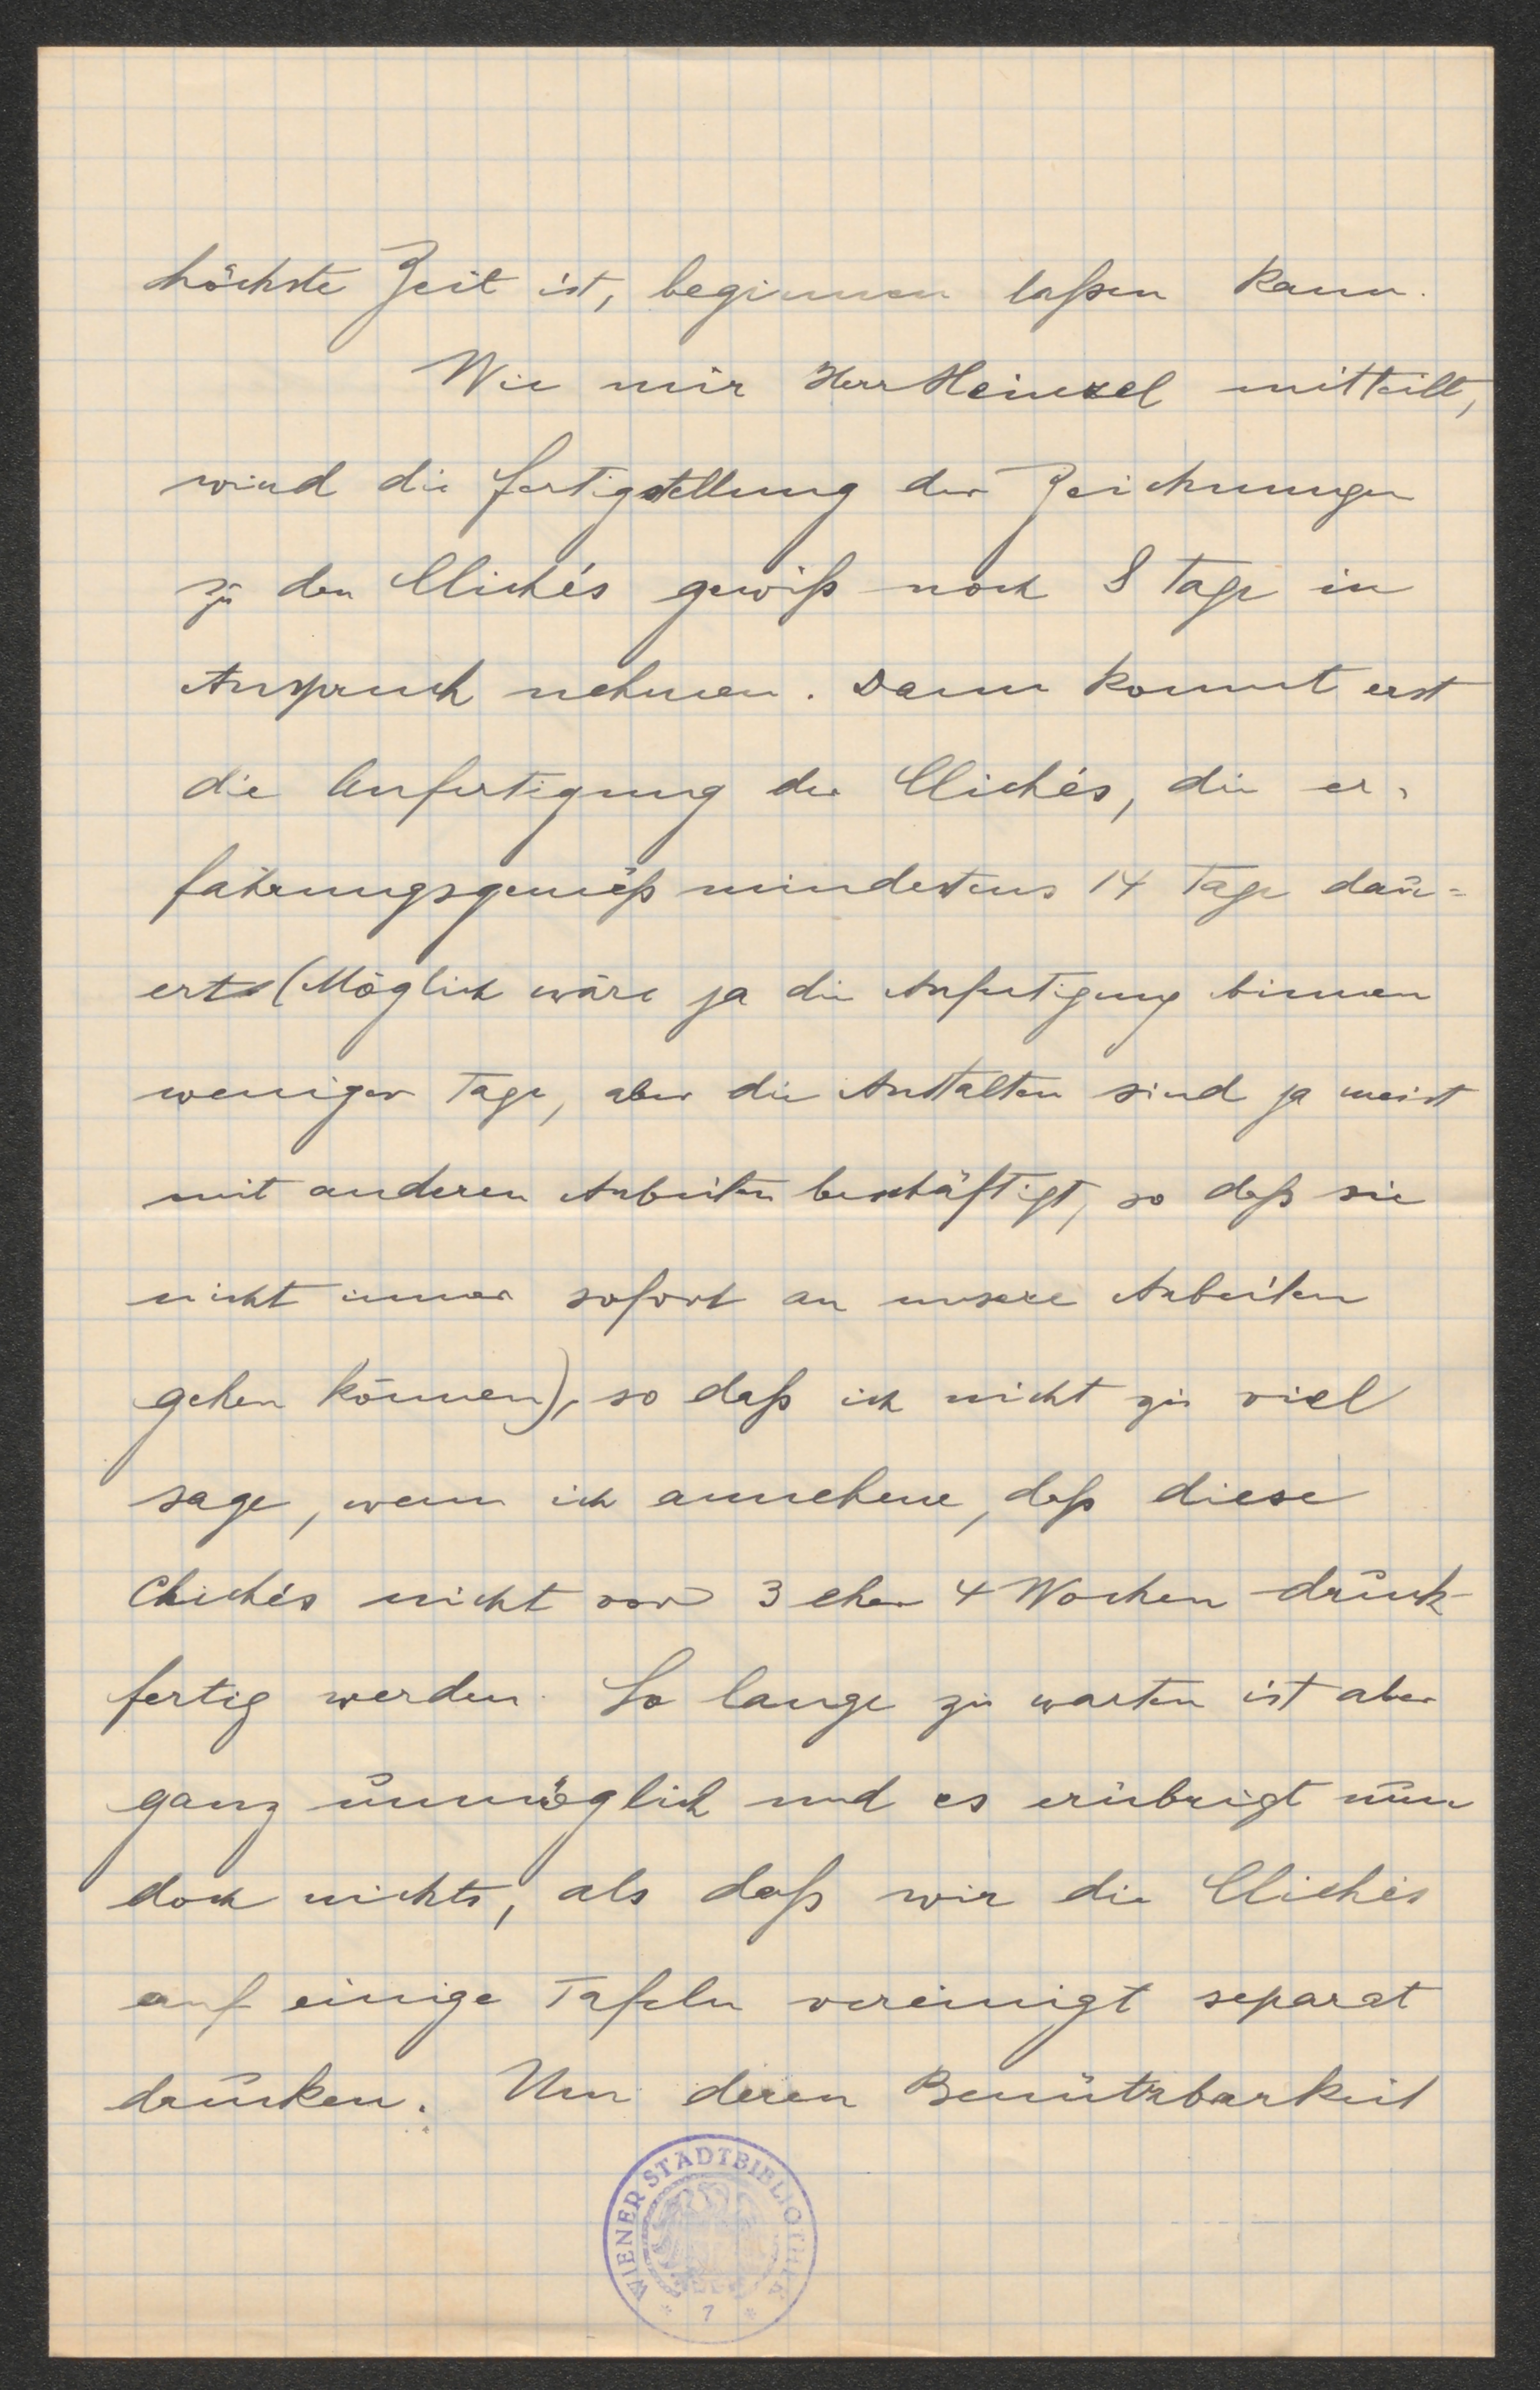 höchste Zeit ist, beginnen laßen kann.
Wie mir Herr Heinzel mitteilt,
wird die Fertigstellung der Zeichnungen
zu den Clichés gewiß noch 8 Tage in
Anspruch nehmen. Dann kommt erst
die Anfertigung der Clichés, die er-
fahrungsgemäß mindestens 14 Tage dau=
ert (Möglich wäre ja die Anfertigung binnen
weniger Tage, aber die Anstalten sind ja meist
mit anderen Arbeiten beschäftigt, so daß sie
nicht immer sofort an unsere Arbeiten
gehen können), so daß ich nicht zu viel
sage, wenn ich annehme, daß diese
Clichés nicht vor 3 eher 4 Wochen druck-
fertig werden. So lange zu warten ist aber
ganz unmöglich und es erübrigt nun
doch nichts, als daß wir die Clichés
auf einige Tafeln vereinigt separat
drucken. Um deren Benützbarkeit
WIENER STADTBIBLIOTHEK
* 7 *